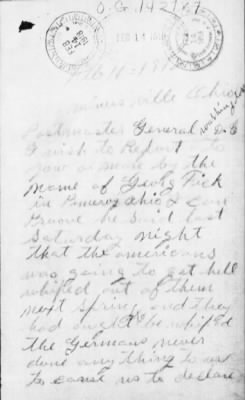 O.G. 142167
FEB 14 1918
Feb 11 - 1918
minersville Ohio
Postmaster General D C
washington
I wish to Report to
you a man by the
name of Georg Fick
in Pomeroy Ohio I can
Proove he said last
Saturday night
that the americans
was going to get hell
whiped out of them
next spring and they
had ought to be whiped
the Germans never
done any thing to us
to cause us to declare